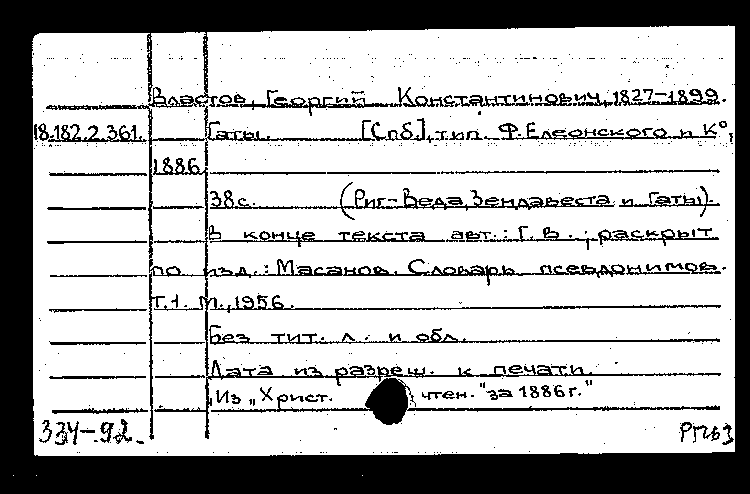 Властов, Георгий Константинович, 1827-1899.
18.182.2.361. Гаты. [Спб], тип. Ф. Елеонского и К°,
1886
38с. (Риг-Веда, Зендавеста и Гаты).
В конце текста авт.: Г. В.; раскрыт
по изд.: Масанов. Словарь псевдонимов.
Т.1. М., 1956.
Без тит. л. и обл.
Дата из разреш. к печати.
Из „Христ. чтен." за 1886г."
334-92